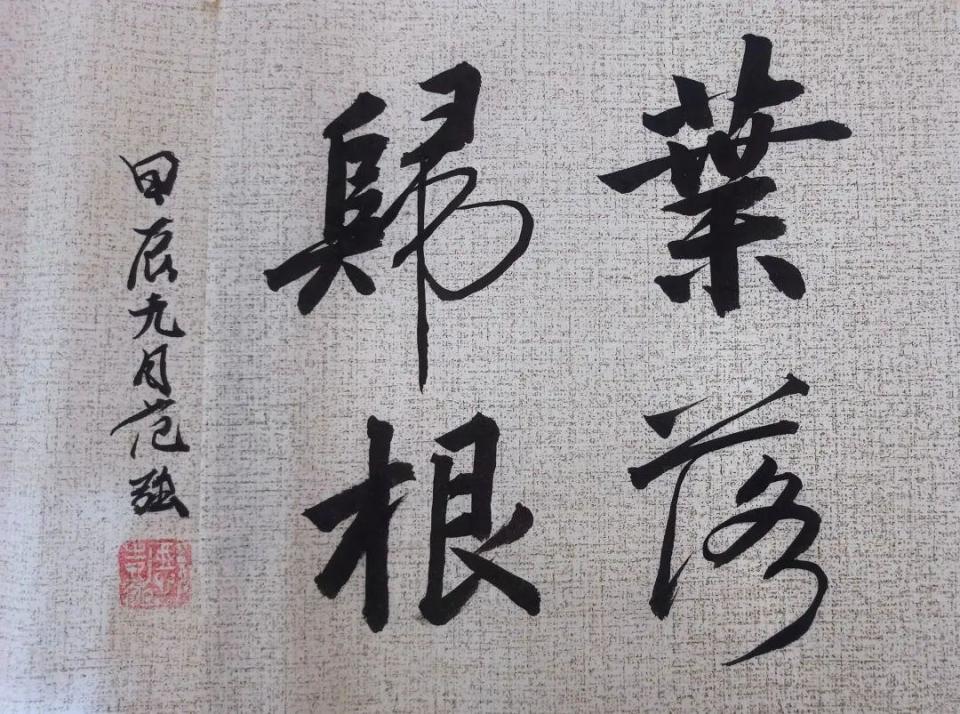 葉落
歸根
甲辰九月范强